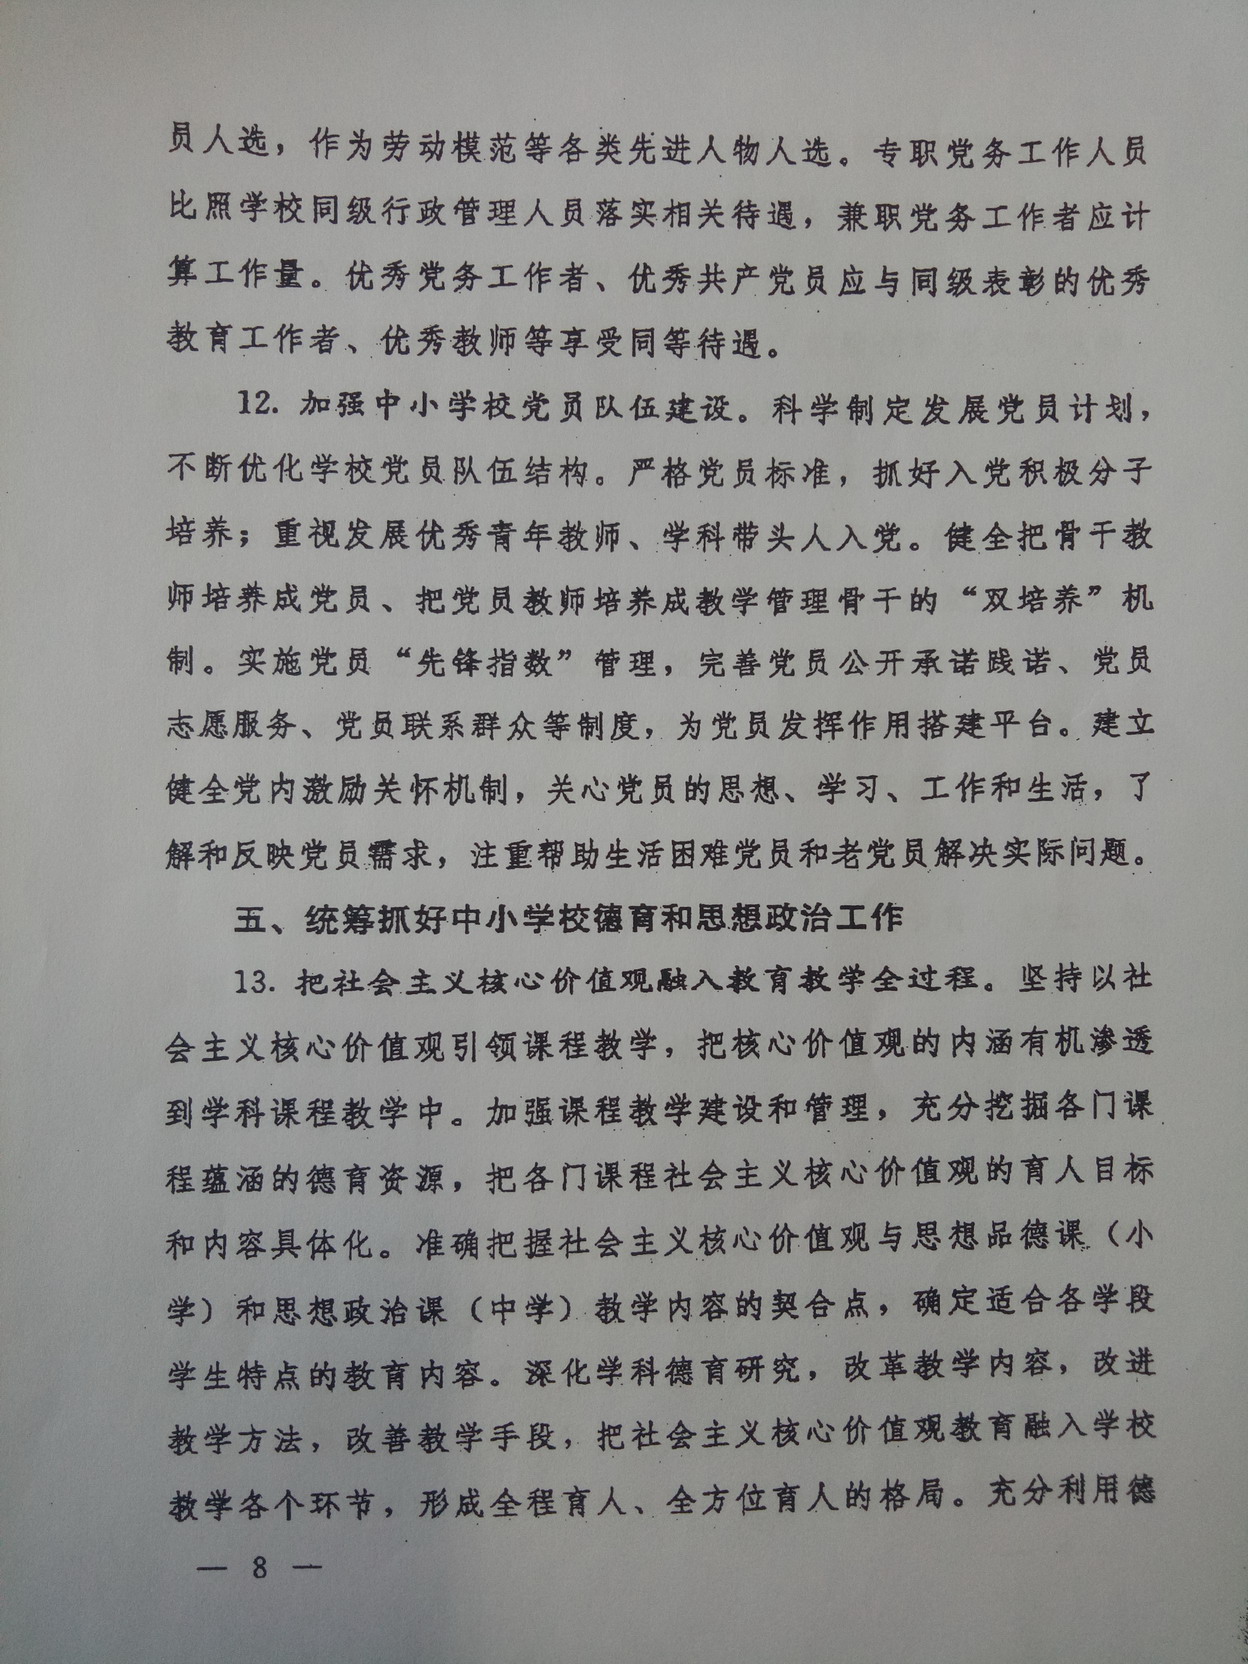 员人选，作为劳动模范等各类先进人物人选。专职党务工作人员
比照学校同级行政管理人员落实相关待遇，兼职党务工作者应计
算工作量。优秀党务工作者、优秀共产党员应与同级表彰的优秀
教育工作者、优秀教师等享受同等待遇。
12. 加强中小学校党员队伍建设。科学制定发展党员计划，
不断优化学校党员队伍结构。严格党员标准，抓好入党积极分子
培养；重视发展优秀青年教师、学科带头人入党。健全把骨干教
师培养成党员、把党员教师培养成教学管理骨干的“双培养”机
制。实施党员“先锋指数”管理，完善党员公开承诺践诺、党员
志愿服务、党员联系群众等制度，为党员发挥作用搭建平台。建立
健全党内激励关怀机制，关心党员的思想、学习、工作和生活，了
解和反映党员需求，注重帮助生活困难党员和老党员解决实际问题。
五、统筹抓好中小学校德育和思想政治工作
13. 把社会主义核心价值观融入教育教学全过程。坚持以社
会主义核心价值观引领课程教学，把核心价值观的内涵有机渗透
到学科课程教学中。加强课程教学建设和管理，充分挖掘各门课
程蕴涵的德育资源，把各门课程社会主义核心价值观的育人目标
和内容具体化。准确把握社会主义核心价值观与思想品德课（小
学）和思想政治课（中学）教学内容的契合点，确定适合各学段
学生特点的教育内容。深化学科德育研究，改革教学内容，改进
教学方法，改善教学手段，把社会主义核心价值观教育融入学校
教学各个环节，形成全程育人、全方位育人的格局。充分利用德
— 8 —